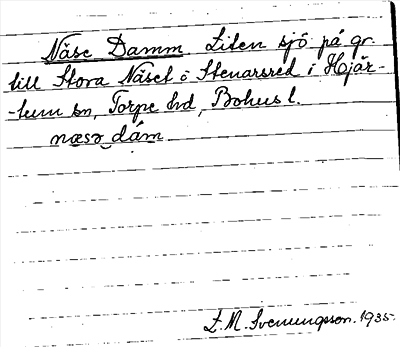 Näse Damm Liten sjö på gr.
till Stora Näset o Stenarsred i Hjär-
-tum sn, Torpe hd, Bohus l.
næsə dám
E. M. Svenungsson. 1935.